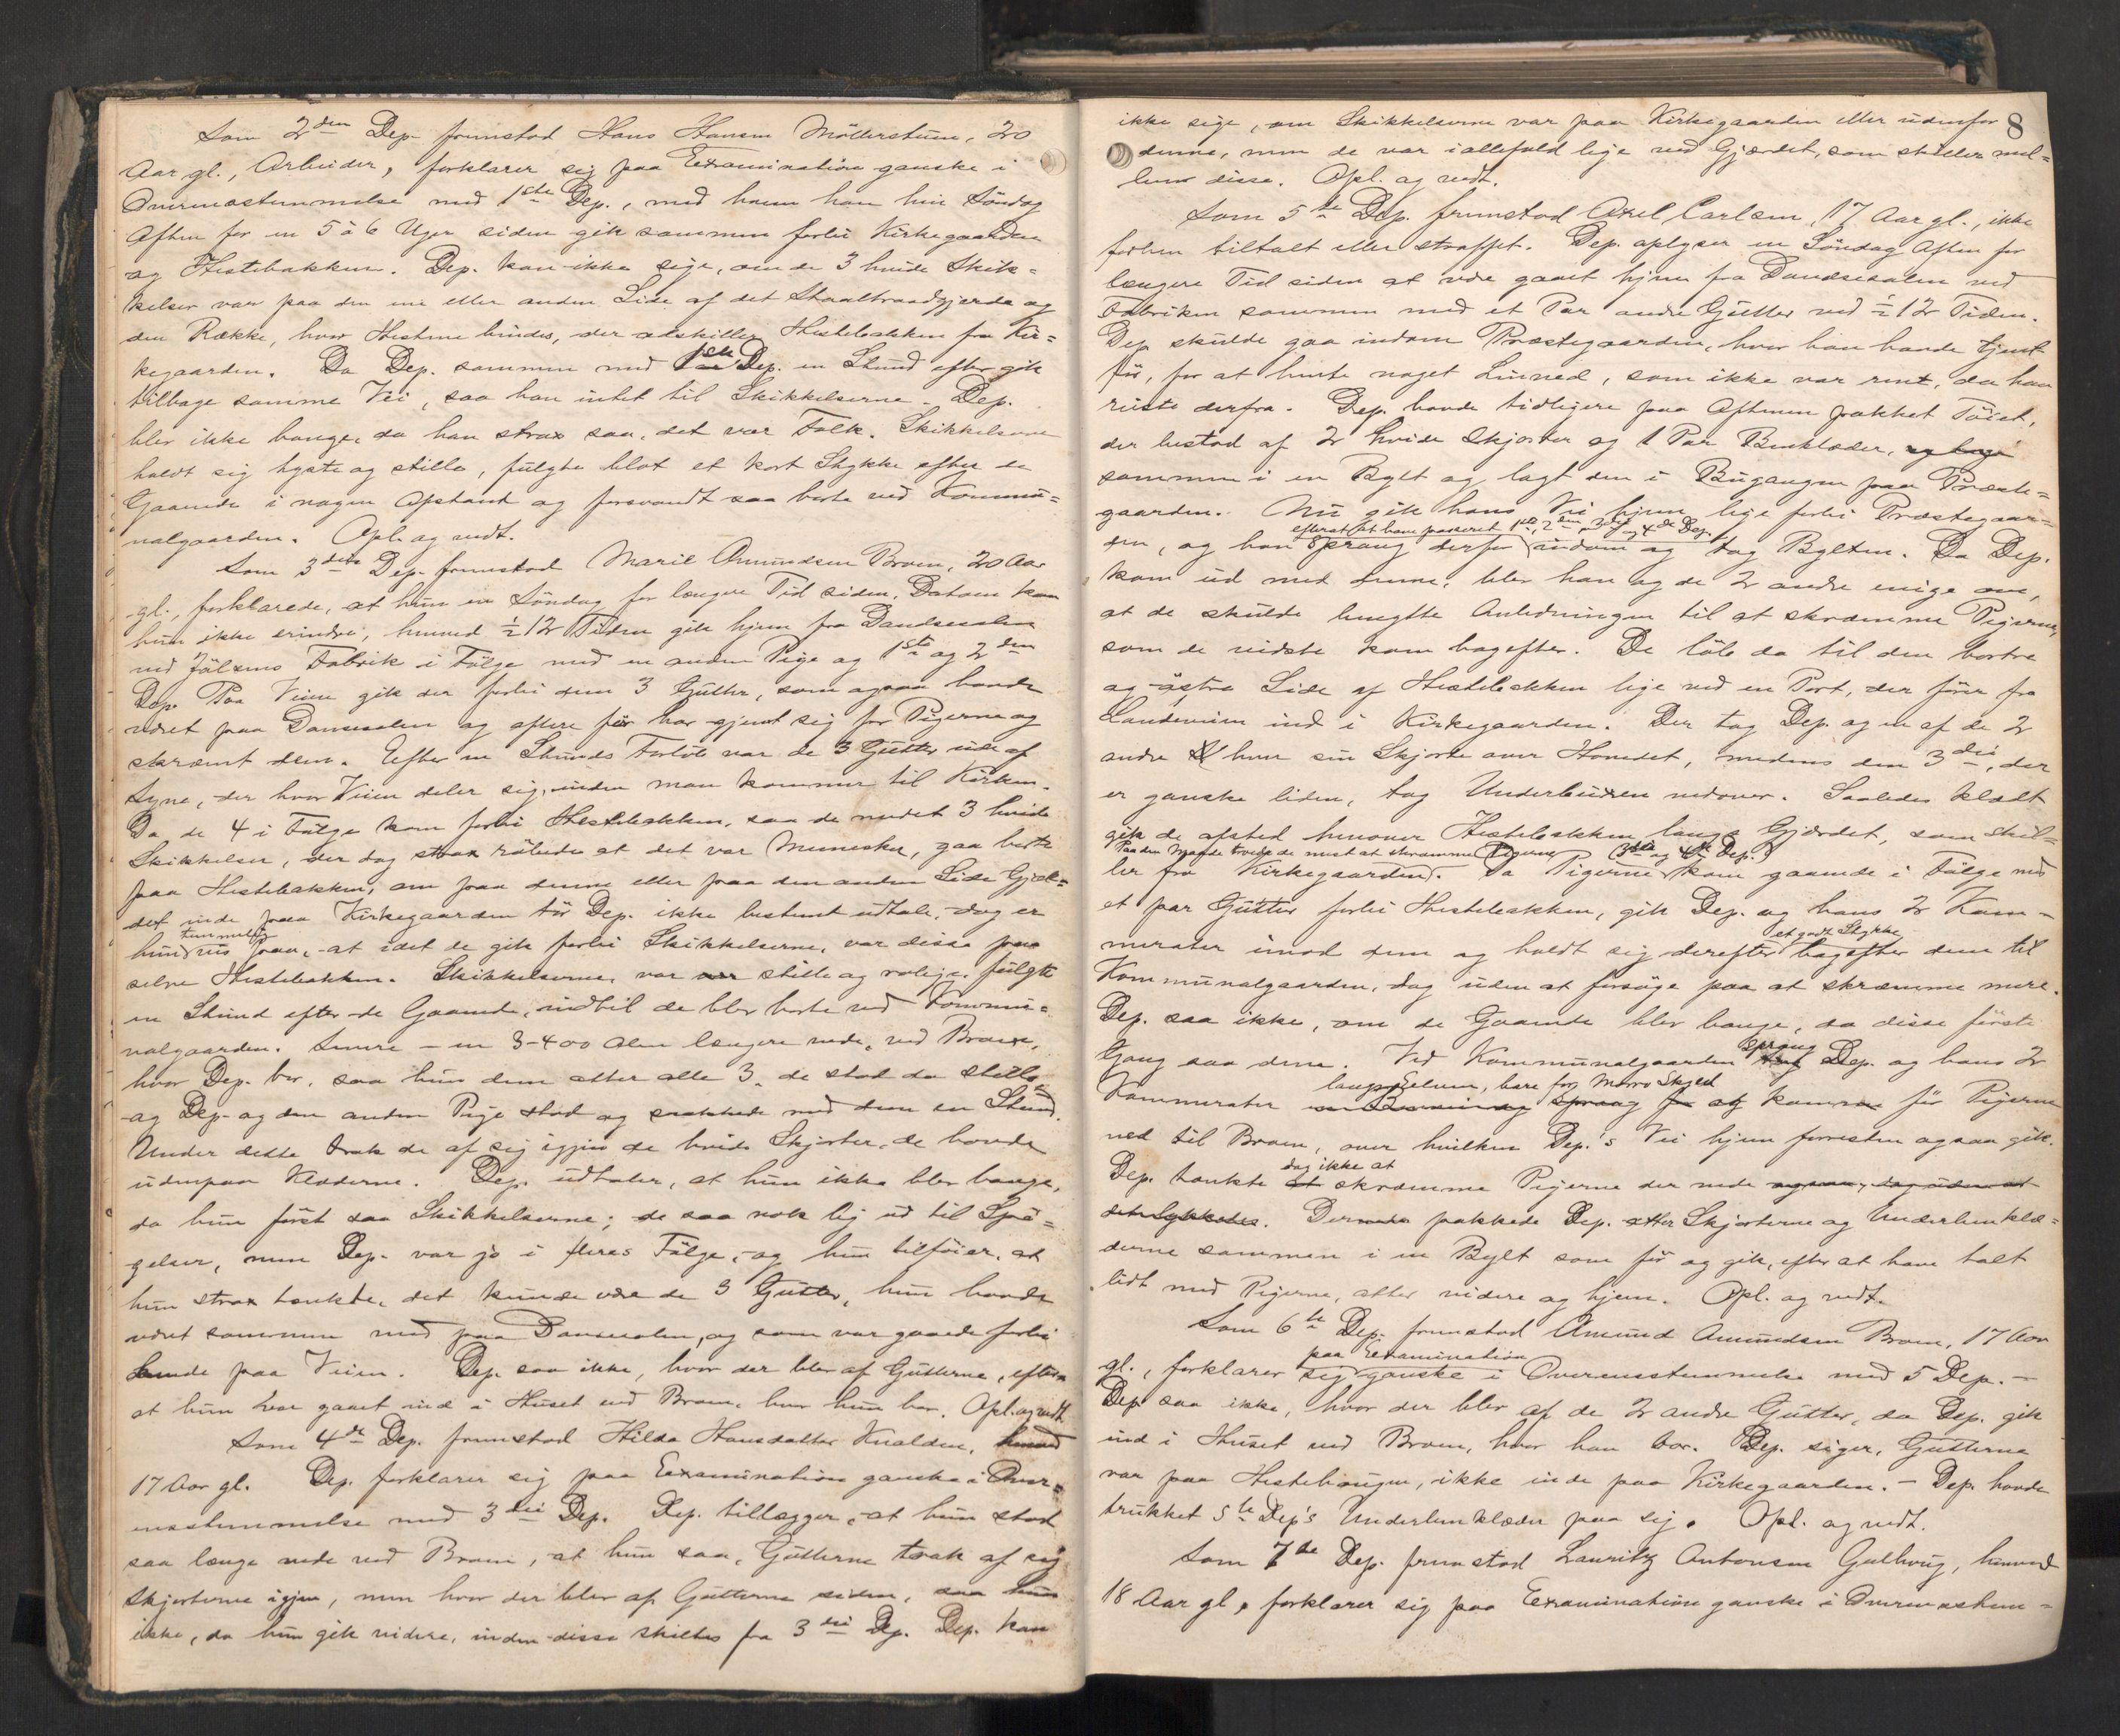 Som 2den Dep. fremstod Hans Hansen Möllerstuen, 20
Aar gl., Arbeider, forklarer sig paa Examination ganske i
Overensstemmelse med 1ste Dep., med hvem han hin Söndag
Aften for en 5 à 6 Uger siden gik sammen forbi Kirkegaarden
og Hestebakken. Dep. kan ikke sige, om de 3 hvide Skik=
kelser var paa den ene eller anden Side af det Staaltraadgjerde og
den Række, hvor Hestene bindes, der adskiller Hestebakken fra Kir=
kegaarden. Da Dep. sammen med 1ste Dep. en Stund efter gik
tilbage samme Vei, saa han intet til Skikkelserne. Dep.
blev ikke bange, da han strax saa, det var Folk. Skikkelserne
holdt sig tyste og stille, fulgte blot et kort Stykke efter de
Gaaende i nogen Afstand og forsvandt saa borte ved Kommu=
nalgaarden. Opl. og vedt.
Som 3die Dep. fremstod Marie Amundsen Broen, 20 Aar
gl., forklarede, at hun en Söndag for længere Tid siden, Datoen kan
hun ikke erindre, henved ½12 Tiden gik hjem fra Dandsesalen
ved Jölsens Fabrik i Fölge med en anden Pige og 1ste og 2den
Dep. Paa Veien gik der forbi dem 3 Gutter, som ogsaa havde
været paa Dansesalen og oftere för har gjemt sig for Pigerne og
skræmt dem. Efter en Stunds Forlöb var de 3 Gutter ude af
Syne, der hvor Veien deler sig, inden man kommer til Kirken.
Da de 4 i Fölge kom forbi Hestebakken, saa de nevnt 3 hvide
Skikkelser, der dog strax röbede at det var Mennesker, gaa borte
paa Hestebakken, om paa denne eller paa den anden Side Gjær=
det inde paa Kirkegaarden tör Dep. ikke bestemt udtale, dog er
hun temmelig vis paa, at idet de gik forbi Skikkelserne, var disse paa
selve Hestebakken. Skikkelserne var stille og rolige, fulgte
en Stund efter de Gaaende, indtil de blev borte ved Kommu=
nalgaarden. Senere – en 3-400 Alen længere nede, ved Broen,
hvor Dep. bor, saa hun dem atter alle 3, de stod da stille
og Dep. og den anden Pige stod og snakkede med dem en Stund.
Under dette trak de af sig igjen de hvide Skjorter, de havde
udenpaa Klæderne. Dep. udtaler, at hun ikke blev bange,
da hun först saa Skikkelserne; de saa nok lig ud til Spö=
gelser, men Dep. var jo i fleres Fölge, og hun tilföier, at
hun strax tænkte, det kunde være de 3 Gutter, hun havde
været sammen med paa Dansesalen, og som var gaaede forbi
hende paa Veien. Dep. saa ikke, hvor der blev af Gutterne, efter
at hun var gaaet ind i Huset ved Broen, hvor hun bor. Opl. og vedt.
Som 4de Dep. fremstod Hilda Hansdatter Kualden, henved
17 Aar gl. Dep. forklarer sig paa Examination ganske i Over=
ensstemmelse med 3die Dep. Dep. tillægger, at hun stod
saa længe nede ved Broen, at hun saa, Gutterne trak af sig
Skjorterne igjen, men hvor der blev af Gutterne siden, saa hun
ikke, da hun gik videre, inden disse skiltes fra 3die Dep. Dep. kan
8
ikke sige, om Skikkelserne var paa Kirkegaarden eller udenfor
denne, men de var iallefald lige ved Gjærdet, som skiller mel=
lem disse. Opl. og vedt.
Som 5te Dep. fremstod Axel Carlsen, 17 Aar gl., ikke
forhen tiltalt eller straffet. Dep. oplyser en Söndag Aften for
længere Tid siden at være gaaet hjem fra Dandsesalen ved
Fabriken sammen med et Par andre Gutter ved ½12 Tiden.
Dep. skulde gaa indom Præstegaarden, hvor han havde tjent
för, for at hente noget Linned, som ikke var rent, da han
reiste derfra. Dep. havde tidligere paa Aftenen pakket Töiet,
der bestod af 2 hvide Skjorter og 1 Par Benklæder,
sammen i en Bylt og lagt den i Bugangen paa Præste=
gaarden. Nu gik hans Vei hjem lige forbi Præstegaar=
efterat at have passeret 1ste, 2den, 3die og 4de Dep.
den, og han sprang derfor indom og tog Bylten. Da Dep.
kom ud med denne, blev han og de 2 andre enige om,
at de skulde benytte Anledningen til at skræmme Pigerne,
som de vidste kom bagefter. De löb da til den bortre
og östre Side af Hestebakken lige ved en Port, der förer fra
Landeveien ind i Kirkegaarden. Der tog Dep. og en af de 2
andre hver sin Skjorte over Hovedet, medens den 3die, der
er ganske liden, tog Underbuxen nedover. Saaledes klædt
gik de afsted henover Hestebakken langs Gjærdet, som skil=
Paa den Maade troede de mest at skræmme Pigerne (3die og 4de Dep.)
ler fra Kirkegaarden. Da Pigerne kom gaaende i Fölge med
et par Gutter forbi Hestebakken, gik Dep. og hans 2 Kam=
et godt Stykke
merater imod dem og holdt sig derefter bagefter dem til
Kommunalgaarden, dog uden at forsöge paa at skræmme mere.
Dep. saa ikke, om de Gaaende blev bange, da disse förste
Gang saa dem. Ved Kommunalgaarden sprang Dep. og hans 2
langs Elven, bare for Morro Skyld
Kammerater og kom för Pigerne
ned til Broen, over hvilken Dep.'s Vei hjem forresten ogsaa gik.
dog ikke at
Dep. tænkte skræmme Pigerne der nede ogsaa, dog uden at
det lykkedes. Der pakkede Dep. atter Skjorterne og Underbenklæ=
derne sammen i en Bylt som för og gik, efter at have talt
lidt med Pigerne, atter videre og hjem. Opl. og vedt.
Som 6te Dep. fremstod Amund Amundsen Broen, 17 Aar
paa Examination
gl., forklarer sig ganske i Overensstemmelse med 5 Dep. –
Dep. saa ikke, hvor der blev af de 2 andre Gutter, da Dep. gik
ind i Huset ved Broen, hvor han bor. Dep. siger, Gutterne
var paa Hestehaugen, ikke inde paa Kirkegaarden. – Dep. havde
trukket 5te Dep's Underbenklæder paa sig. Opl. og vedt.
Som 7de Dep. fremstod Lauritz Antonsen Gulhoug, henved
18 Aar gl., forklarer sig paa Examination ganske i Overensstem=